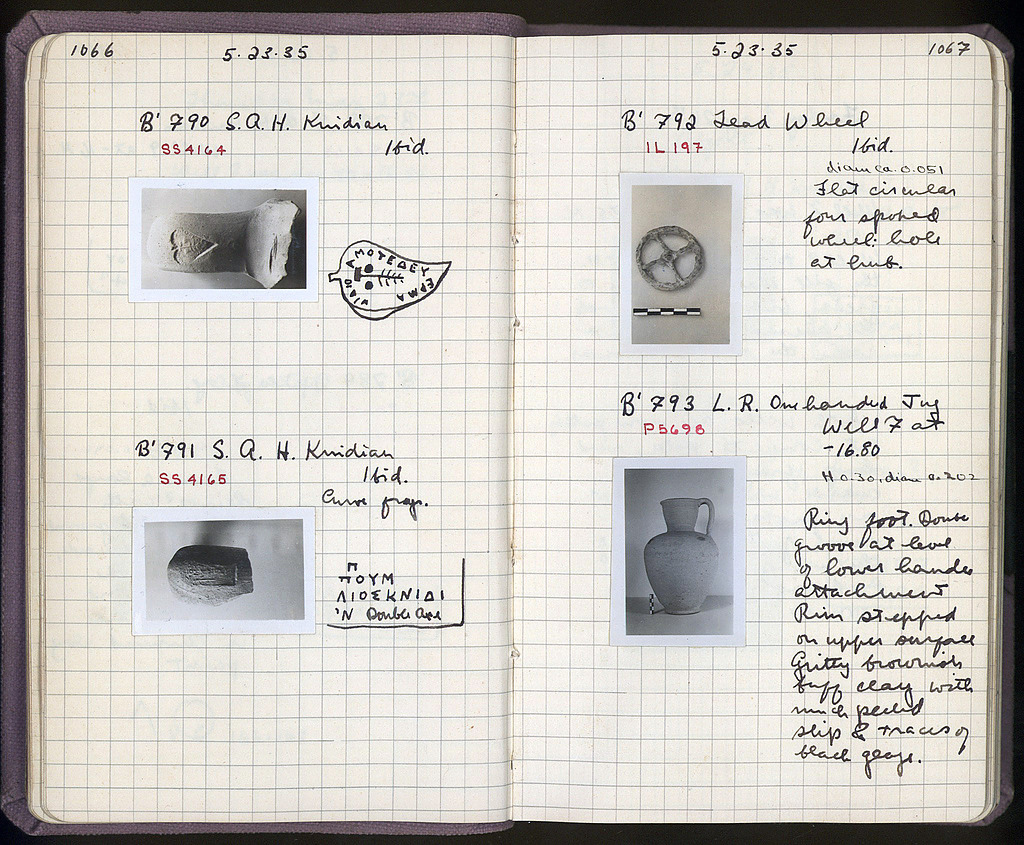 1066
5·23·35
B' 790 S.A.H. Knidian
SS 4164
Ibid.
ΑΜΟΤΕΔΕΥ
ΕΡΜΑ
B' 791 S. A. H. Knidian
SS 4165
Ibid.
Curve frag.
Π
ΠΟΥΜ
ΛΙΟΣΚΝΙΔΙ
'Ν Double Axe
5·23·35
1067
B' 792 Lead Wheel
IL 197
Ibid.
diam ca. 0.051
Flat circular
four spoked
wheel: hole
at hub.
B' 793 L. R. One handed Jug
P 5698
Well 7 at
-16.80
H. 0.30, diam 0.202
Ring foot. Double
groove at level
of lower handle
attachment
Rim stepped
on upper surface
Gritty brownish
buff clay with
much peeled
slip & traces of
black glaze.